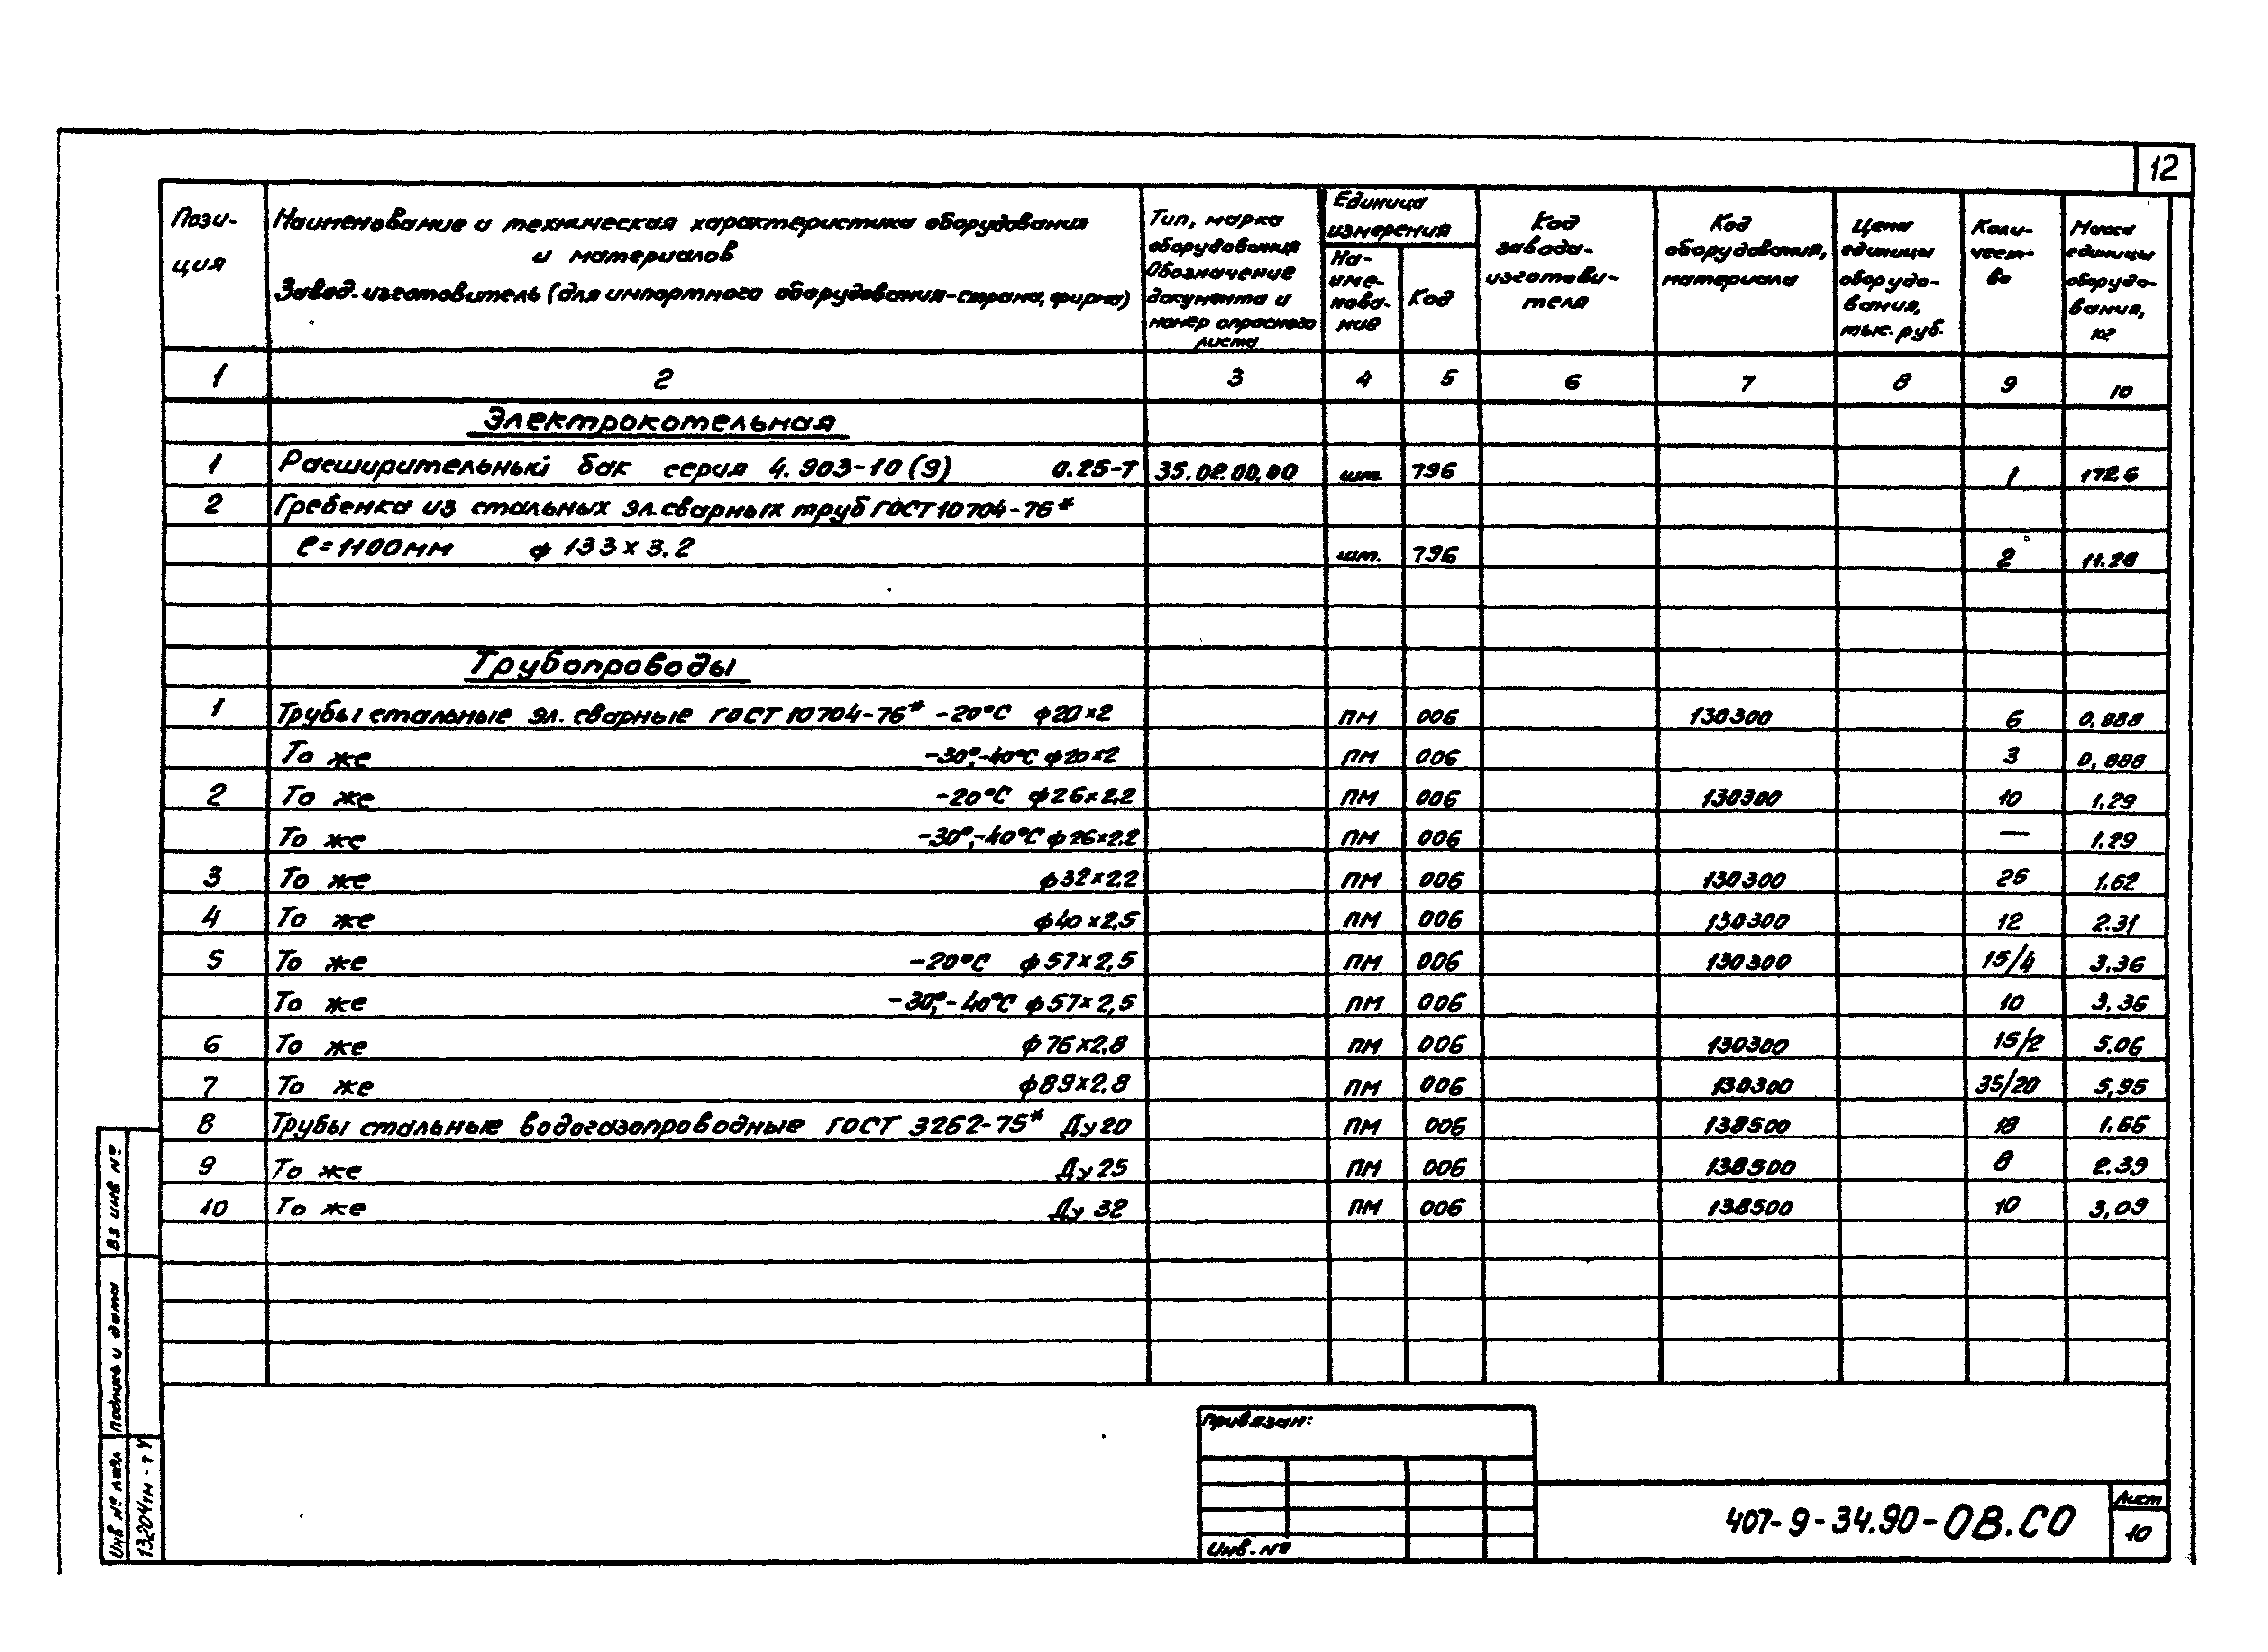 12
Пози-
ция
Наименование и техническая характеристика оборудования
и материалов
Завод-изготовитель (для импортного оборудования-страна, фирма)
Тип, марка
оборудования
Обозначение
документа и
номер опросного
листа
Единица
измерения
На-
име-
нова-
ние
Код
Код
завода-
изготови-
теля
Код
оборудования,
материала
Цена
единицы
оборудо-
вания,
тыс. руб.
Коли-
чест-
во
Масса
единицы
оборудо-
вания,
кг
1 2 3 4 5 6 7 8 9 10
Электрокотельная
1 Расширительный бак серия 4.903-10 (9) 0.25-Т 35.02.00.00 шт. 796 1 172.6
2 Гребенка из стальных эл.сварных труб ГОСТ 10704-76*
ℓ=1100мм ф 133х3.2 шт. 796 2 11.26
Трубопроводы
1 Трубы стальные эл. сварные ГОСТ 10704-76* -20°С ф20х2 пм 006 130300 6 0,888
То же -30°,-40°С ф20х2 пм 006 3 0,888
2 То же -20°С ф26х2,2 пм 006 130300 10 1,29
То же -30°,-40°С ф26х2.2 пм 006 — 1.29
3 То же ф32х2,2 пм 006 130300 25 1.62
4 То же ф40х2,5 пм 006 130300 12 2.31
5 То же -20°С ф57х2,5 пм 006 130300 15/4 3,36
То же -30°,-40°С ф57х2,5 пм 006 10 3,36
6 То же ф76х2,8 пм 006 130300 15/2 5.06
7 То же ф89х2,8 пм 006 130300 35/20 5,95
8 Трубы стальные водогазопроводные ГОСТ 3262-75* Ду20 пм 006 138500 18 1.66
9 То же Ду25 пм 006 138500 8 2.39
10 То же Ду 32 пм 006 138500 10 3,09
Вз инв №
Подпись и дата
Инв № подл
13204тм-т
Привязан:
Инв. №
407-9-34.90-ОВ.СО
Лист
10